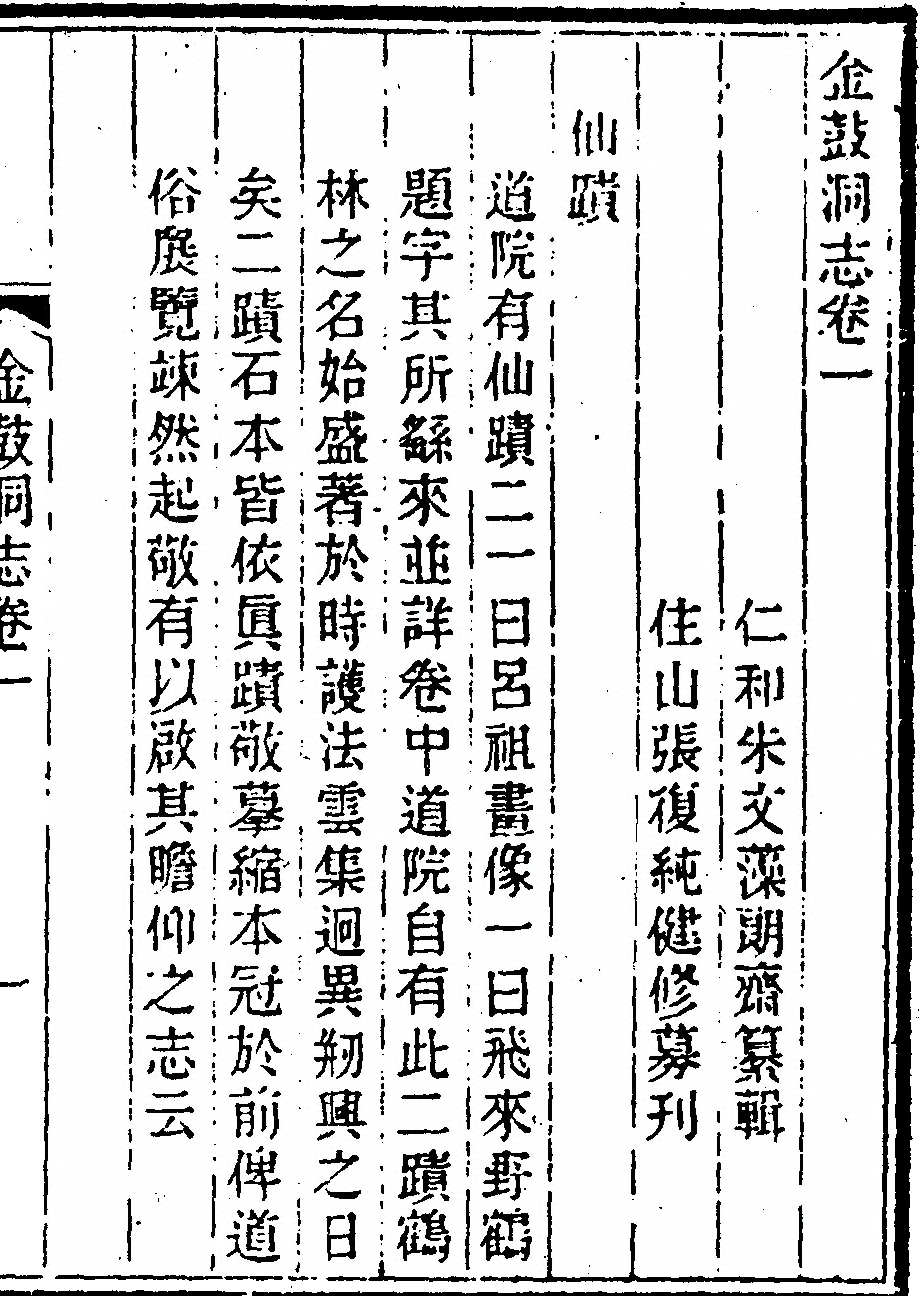 金鼓洞志卷一
仁和朱文藻朗齋纂輯
住山張復純健修募刋
仙蹟
道院有仙蹟二一曰呂祖畫像一曰飛來野鶴
題字其所繇來並詳卷中道院自有此二蹟鶴
林之名始盛著於時護法雲集迥異剏興之日
矣二蹟石本皆依眞蹟敬摹縮本冠於前俾道
俗展覽竦然起敬有以啟其瞻仰之志云
金鼓洞志卷一
一